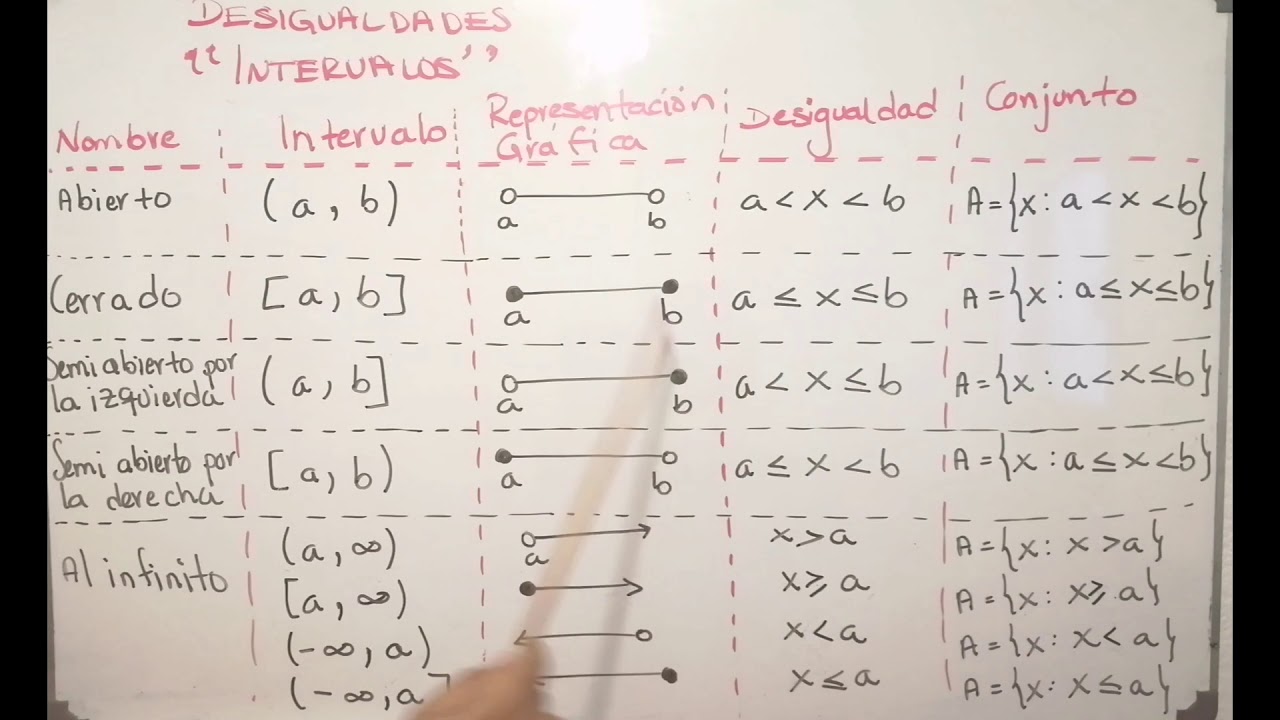 DESIGUALDADES
“INTERVALOS”
Nombre Intervalo Representación Gráfica Desigualdad Conjunto
Abierto (a, b) a b a < x < b A={x: a < x < b}
Cerrado [a, b] a b a ≤ x ≤ b A={x: a ≤ x ≤ b}
Semi abierto por
la izquierda (a, b] a b a < x ≤ b A={x: a < x ≤ b}
Semi abierto por
la derecha [a, b) a b a ≤ x < b A={x: a ≤ x < b}
Al infinito (a, ∞) a x > a A={x: x > a}
[a, ∞) x ≥ a A={x: x ≥ a}
(-∞, a) x < a A={x: x < a}
(-∞, a] x ≤ a A={x: x ≤ a}